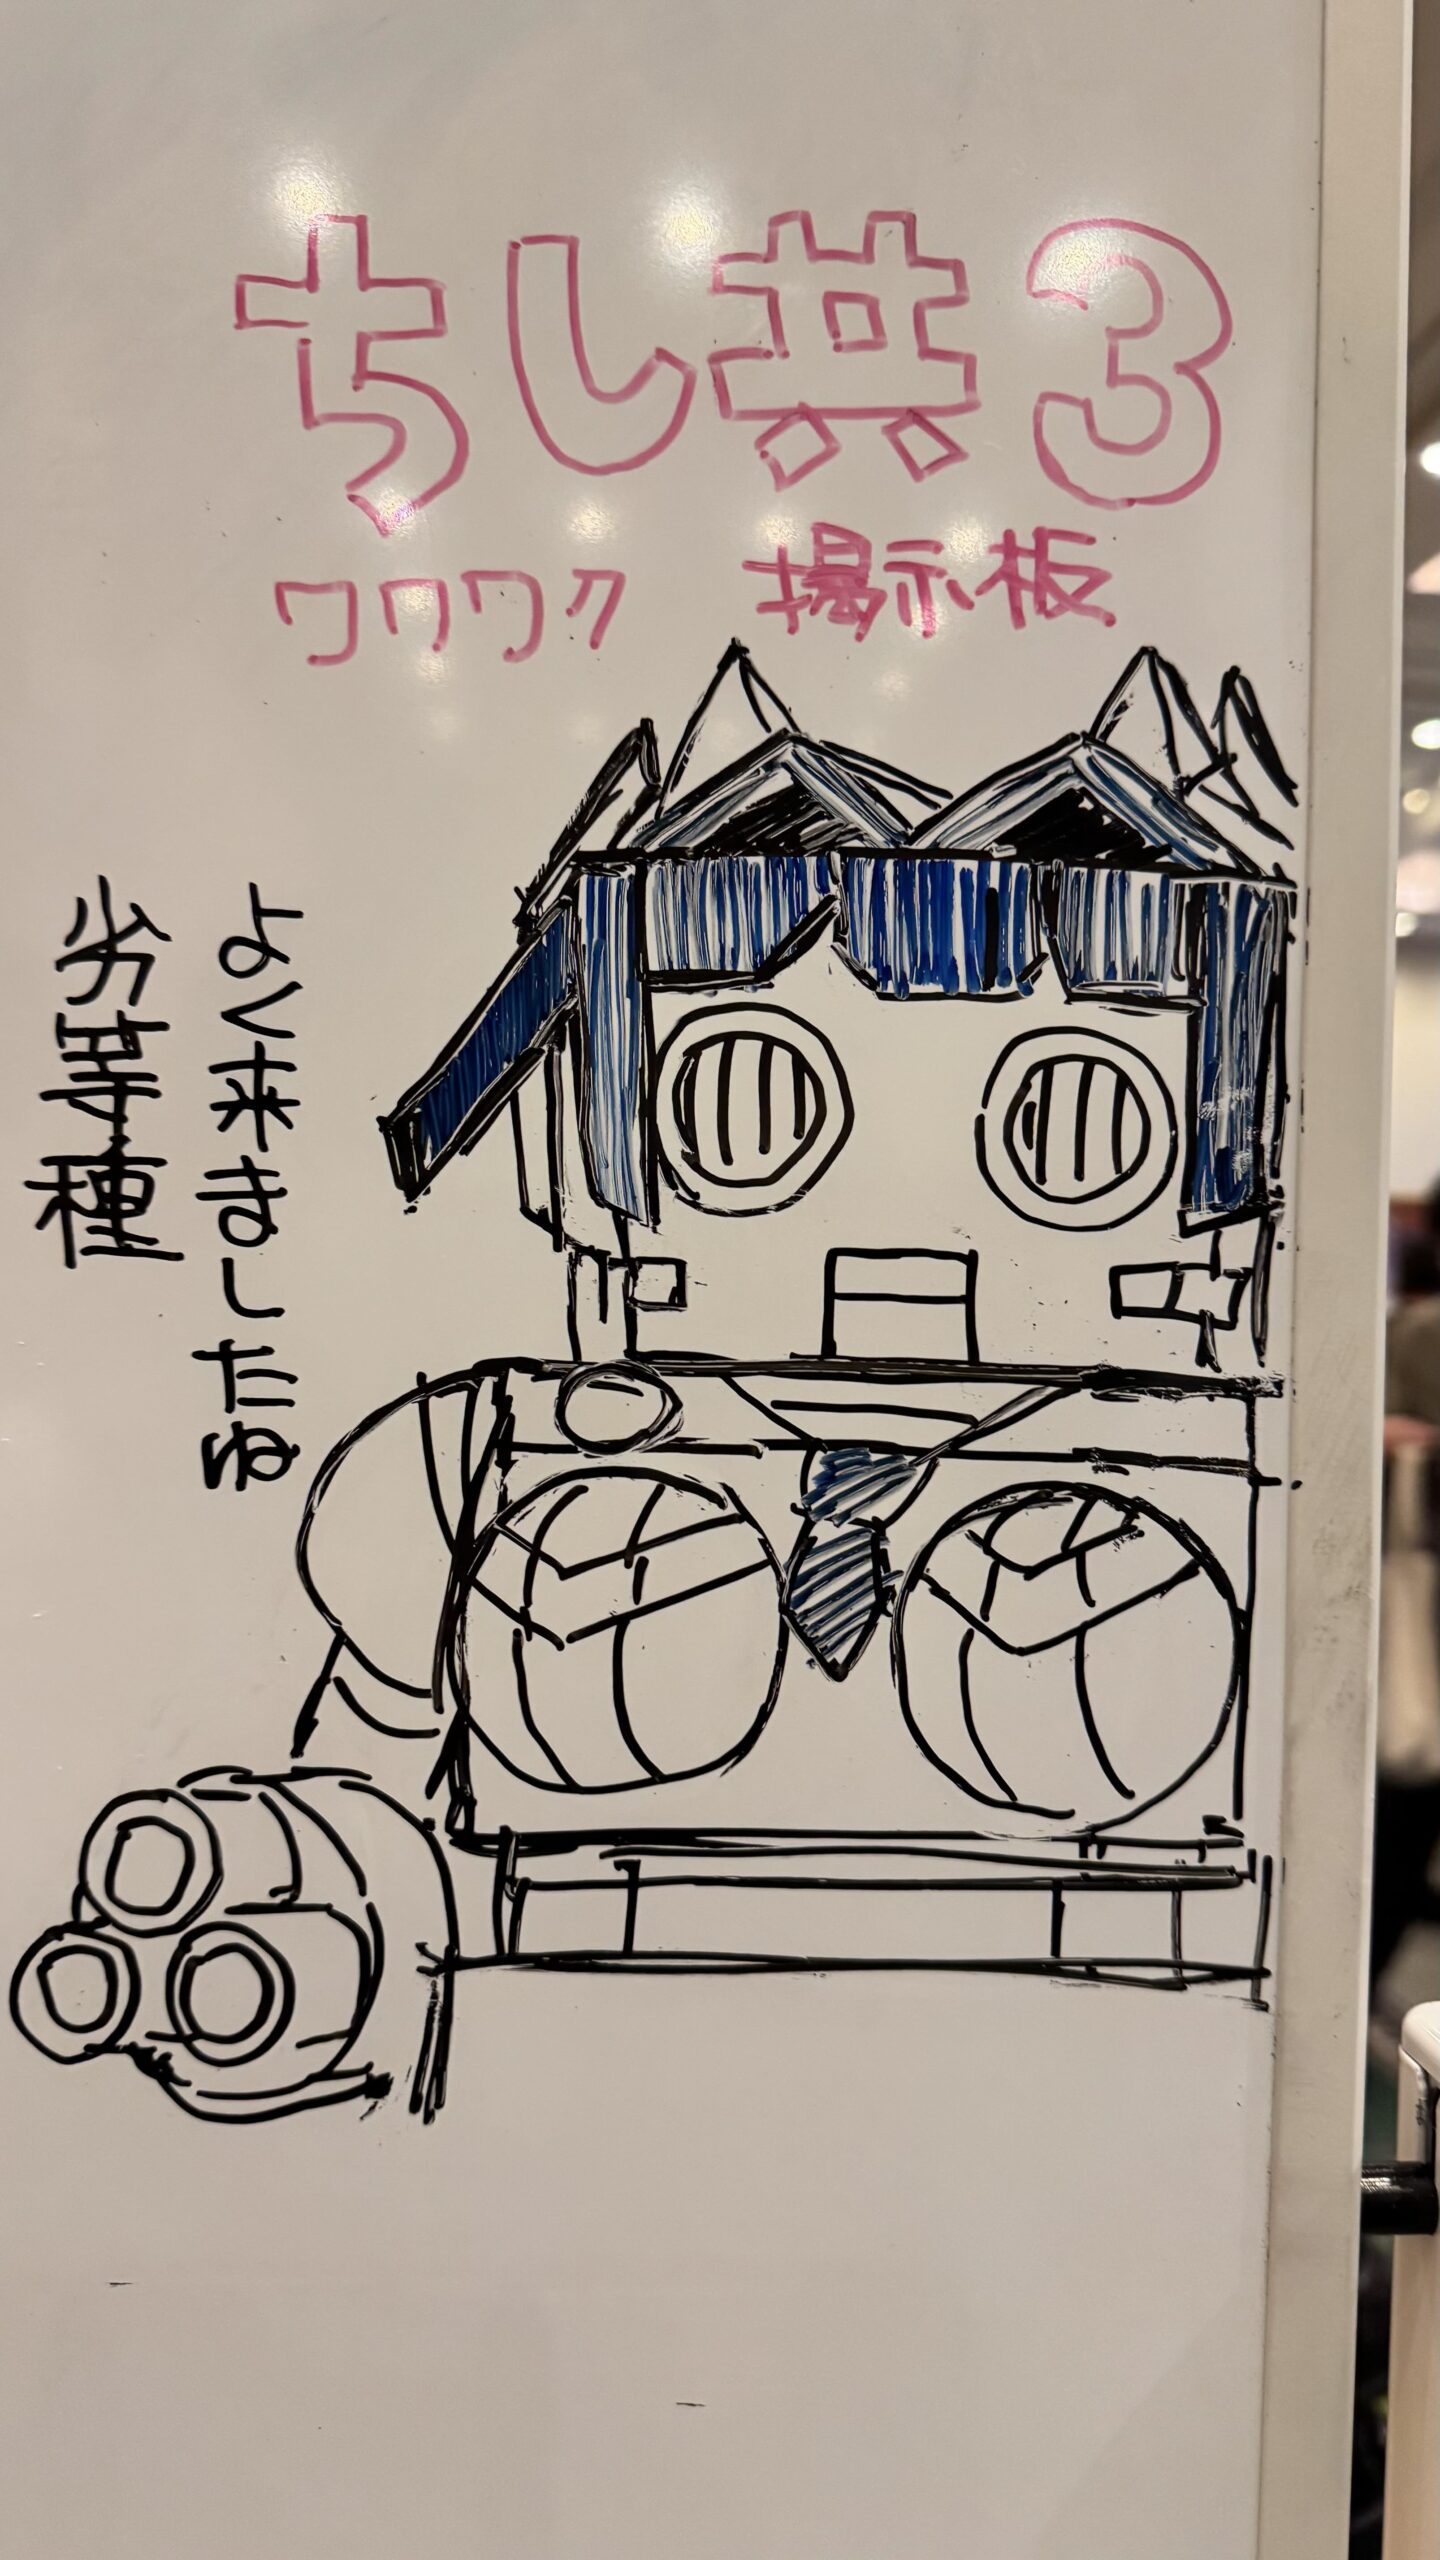 ちし共3
ワワワク 掲示板
よく来ましたね
劣等種